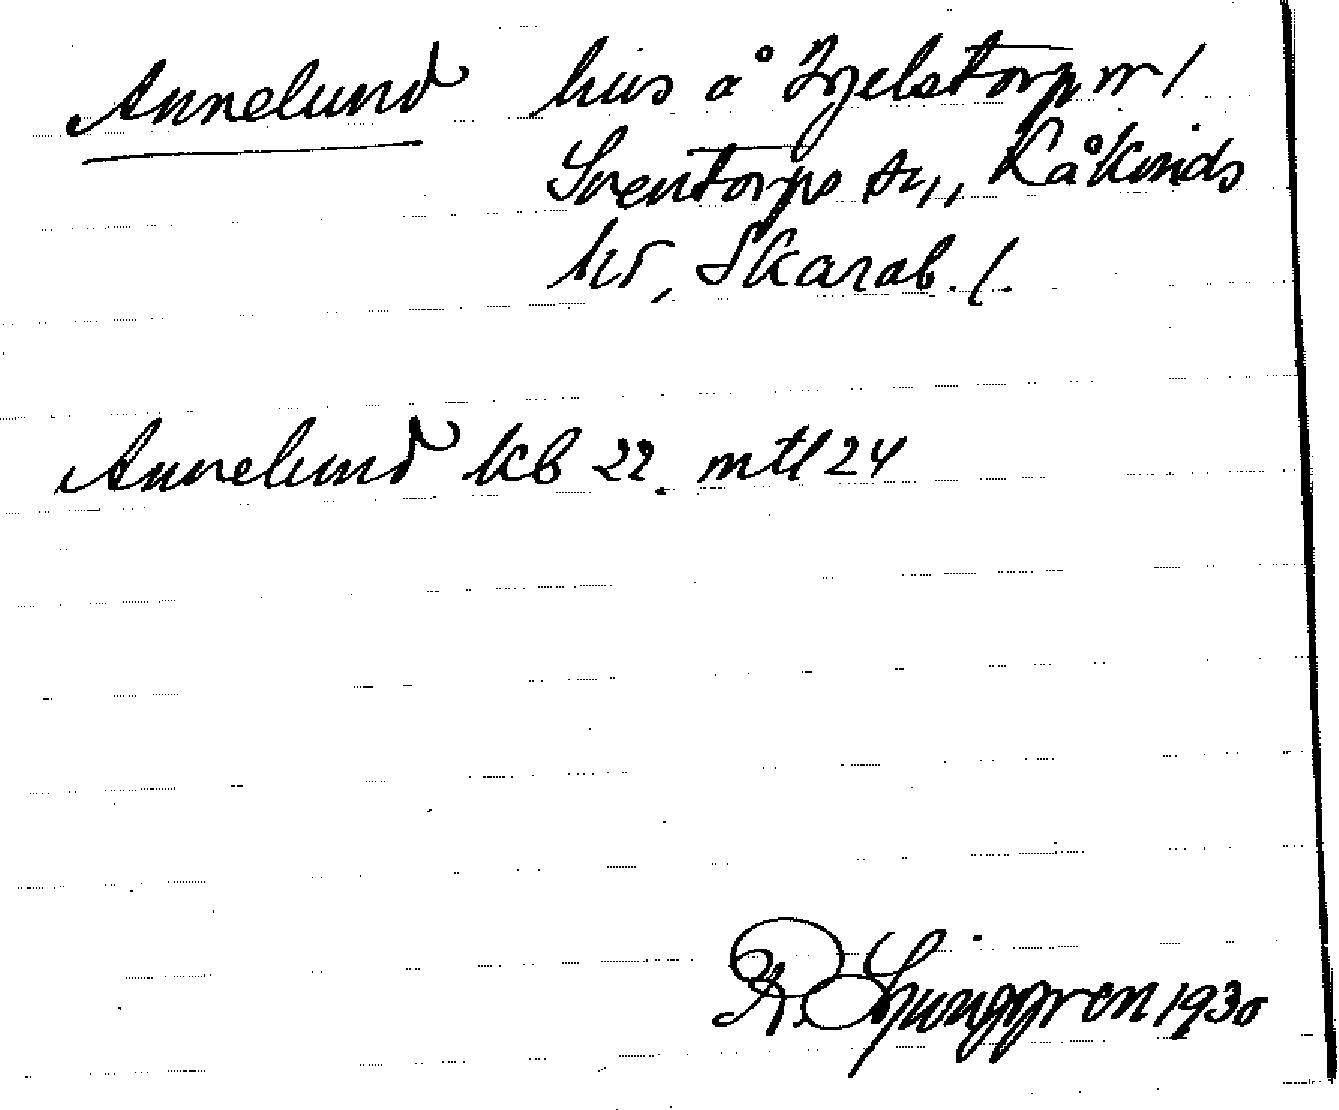 Annelund hus å Igelstorp nr 1
Sventorps sn, Kåkinds
hd, Skarab. l.
Annelund kb 22. mtl 24
R. Ljunggren 1930